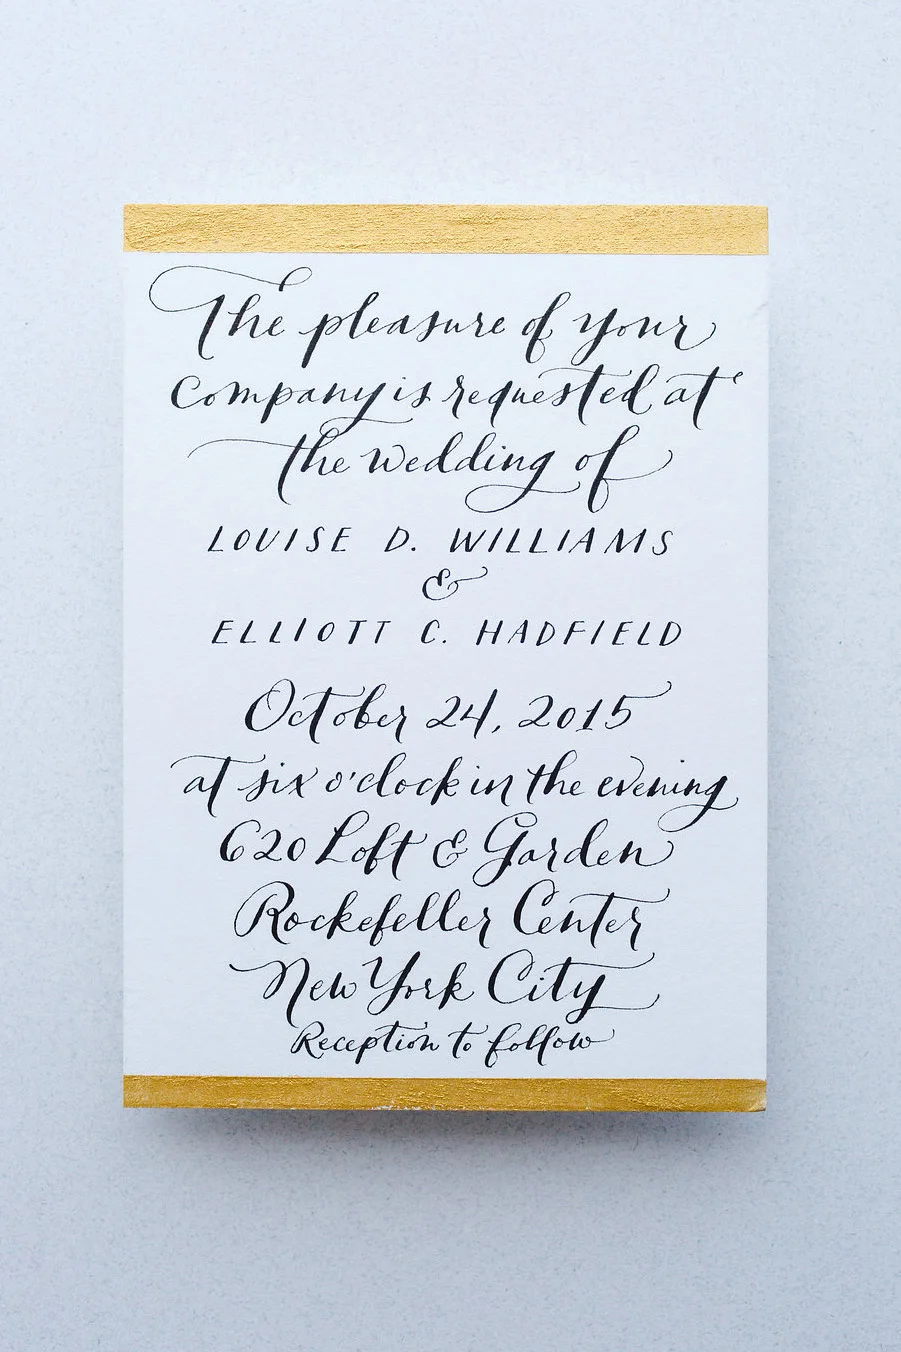 The pleasure of your
company is requested at
the wedding of
LOUISE D. WILLIAMS
&
ELLIOTT C. HADFIELD
October 24, 2015
at six o'clock in the evening
620 Loft & Garden
Rockefeller Center
New York City
Reception to follow